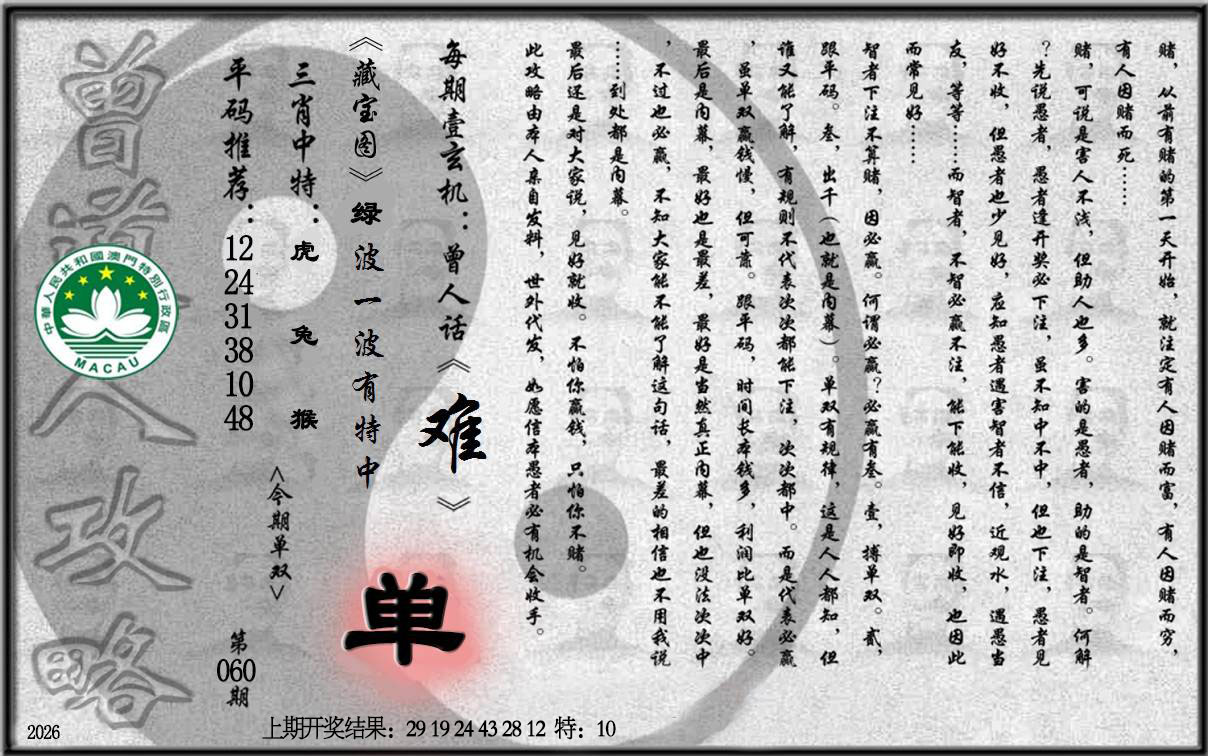 赌，从前有赌的第一天开始，就注定有人因赌而富，有人因赌而穷，
有人因赌而死……
赌，可说是害人不浅，但助人也多。害的是愚者，助的是智者。何解
？先说愚者，愚者逢开奖必下注，虽不知中不中，但也下注，愚者见
好不收，但愚者也少见好，应知愚者遇害智者不信，近观水，遇愚当
友，等等……而智者，不智必赢不注，能下能收，见好即收，也因此
而常见好……
智者下注不算赌，因必赢。何谓必赢？必赢有叁。壹，搏单双。贰，
跟平码。叁，出千（也就是内幕）。单双有规律，这是人人都知，但
谁又能了解，有规则不代表次次都能下注，次次都中。而是代表必赢
，虽单双赢钱慢，但可靠。跟平码，时间长本钱多，利润比单双好。
最后是内幕，最好也是最差，最好是当然真正内幕，但也没法次次中
，不过也必赢，不知大家能不能了解这句话，最差的相信也不用我说
……到处都是内幕。
最后还是对大家说，见好就收。不怕你赢钱，只怕你不赌。
此攻略由本人亲自发料，世外代发，如愿信本愚者必有机会收手。
每期壹玄机：曾人话《难》
《藏宝图》绿波一波有特中
单
三肖中特：虎 兔 猴
<今期单双>
平码推荐：12 24 31 38 10 48
第060期
曾道人攻略
中華人民共和國澳門特別行政區
MACAU
2026
上期开奖结果：29 19 24 43 28 12 特：10